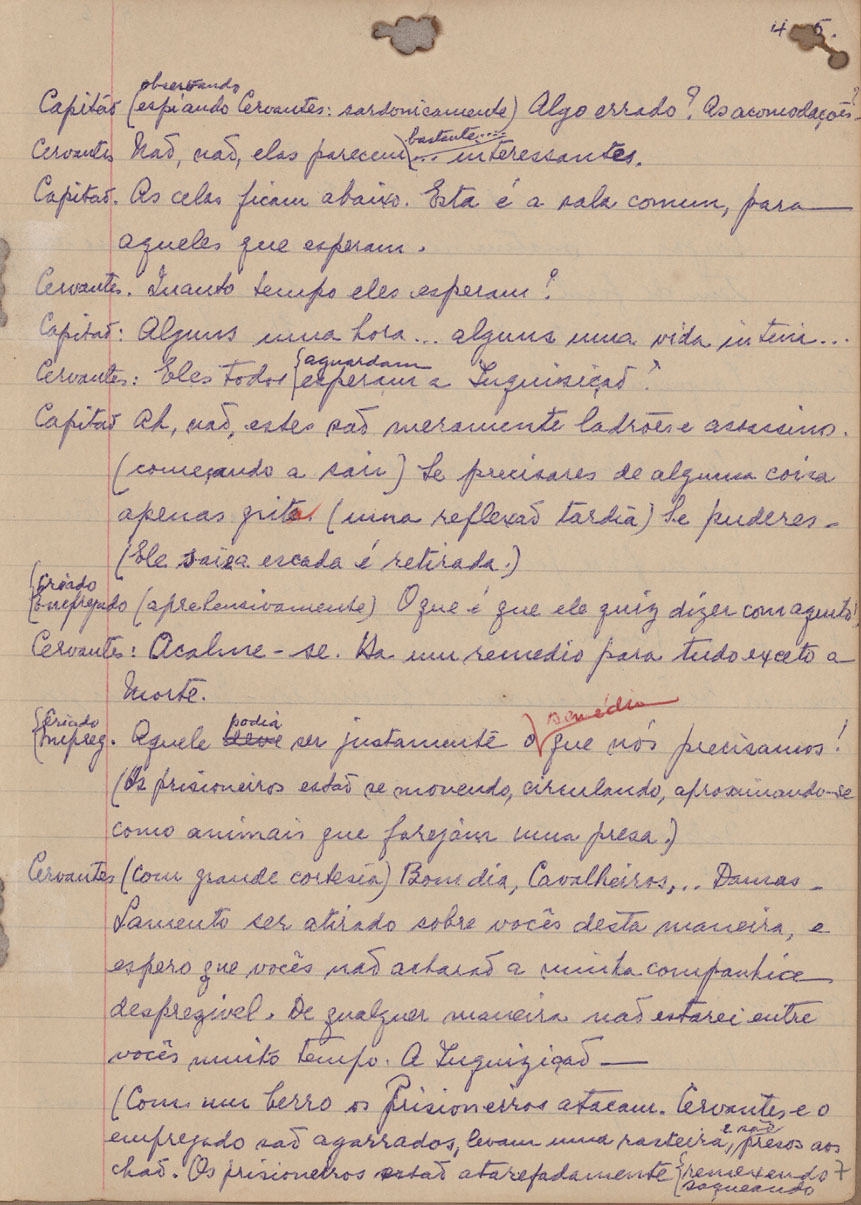 4 5.
observando
Capitão (espiando Cervantes: sardonicamente) Algo errado? As acomodações?
bastante....
Cervantes Não, não, elas parecem ... interessantes.
Capitão. As celas ficam abaixo. Esta é a sala comum, para
aqueles que esperam.
Cervantes. Quanto tempo eles esperam?
Capitão: Alguns uma hora... alguns uma vida inteira...
aguardam
Cervantes: Eles todos esperam a Inquisição?
Capitão Ah, não, estes são meramente ladrões e assassinos.
(começando a sair) Se precisares de alguma coisa
apenas grita. (uma reflexão tardia) Se puderes -
(Ele sai e a escada é retirada.)
Criado
Empregado (apreensivamente) O que é que ele quiz dizer com aquilo?
Cervantes: Acalme-se. Ha um remedio para tudo exceto a
Morte.
Criado podia remédio
Empreg. Aquele deve ser justamente o que nós precisamos!
(Os prisioneiros estão se movendo, circulando, aproximando-se
como animais que farejam uma presa.)
Cervantes (Com grande cortesia) Bom dia, Cavalheiros,... Damas -
Lamento ser atirado sobre vocês desta maneira, e
espero que vocês não acharão a minha companhia
desprezivel. De qualquer maneira não estarei entre
vocês muito tempo. A Inquizição —
(Com um berro os Prisioneiros atacam. Cervantes e o
e são
empregado são agarrados, levam uma rasteira, presos aos
chão. Os prisioneiros estão atarefadamente remexendo
saqueando